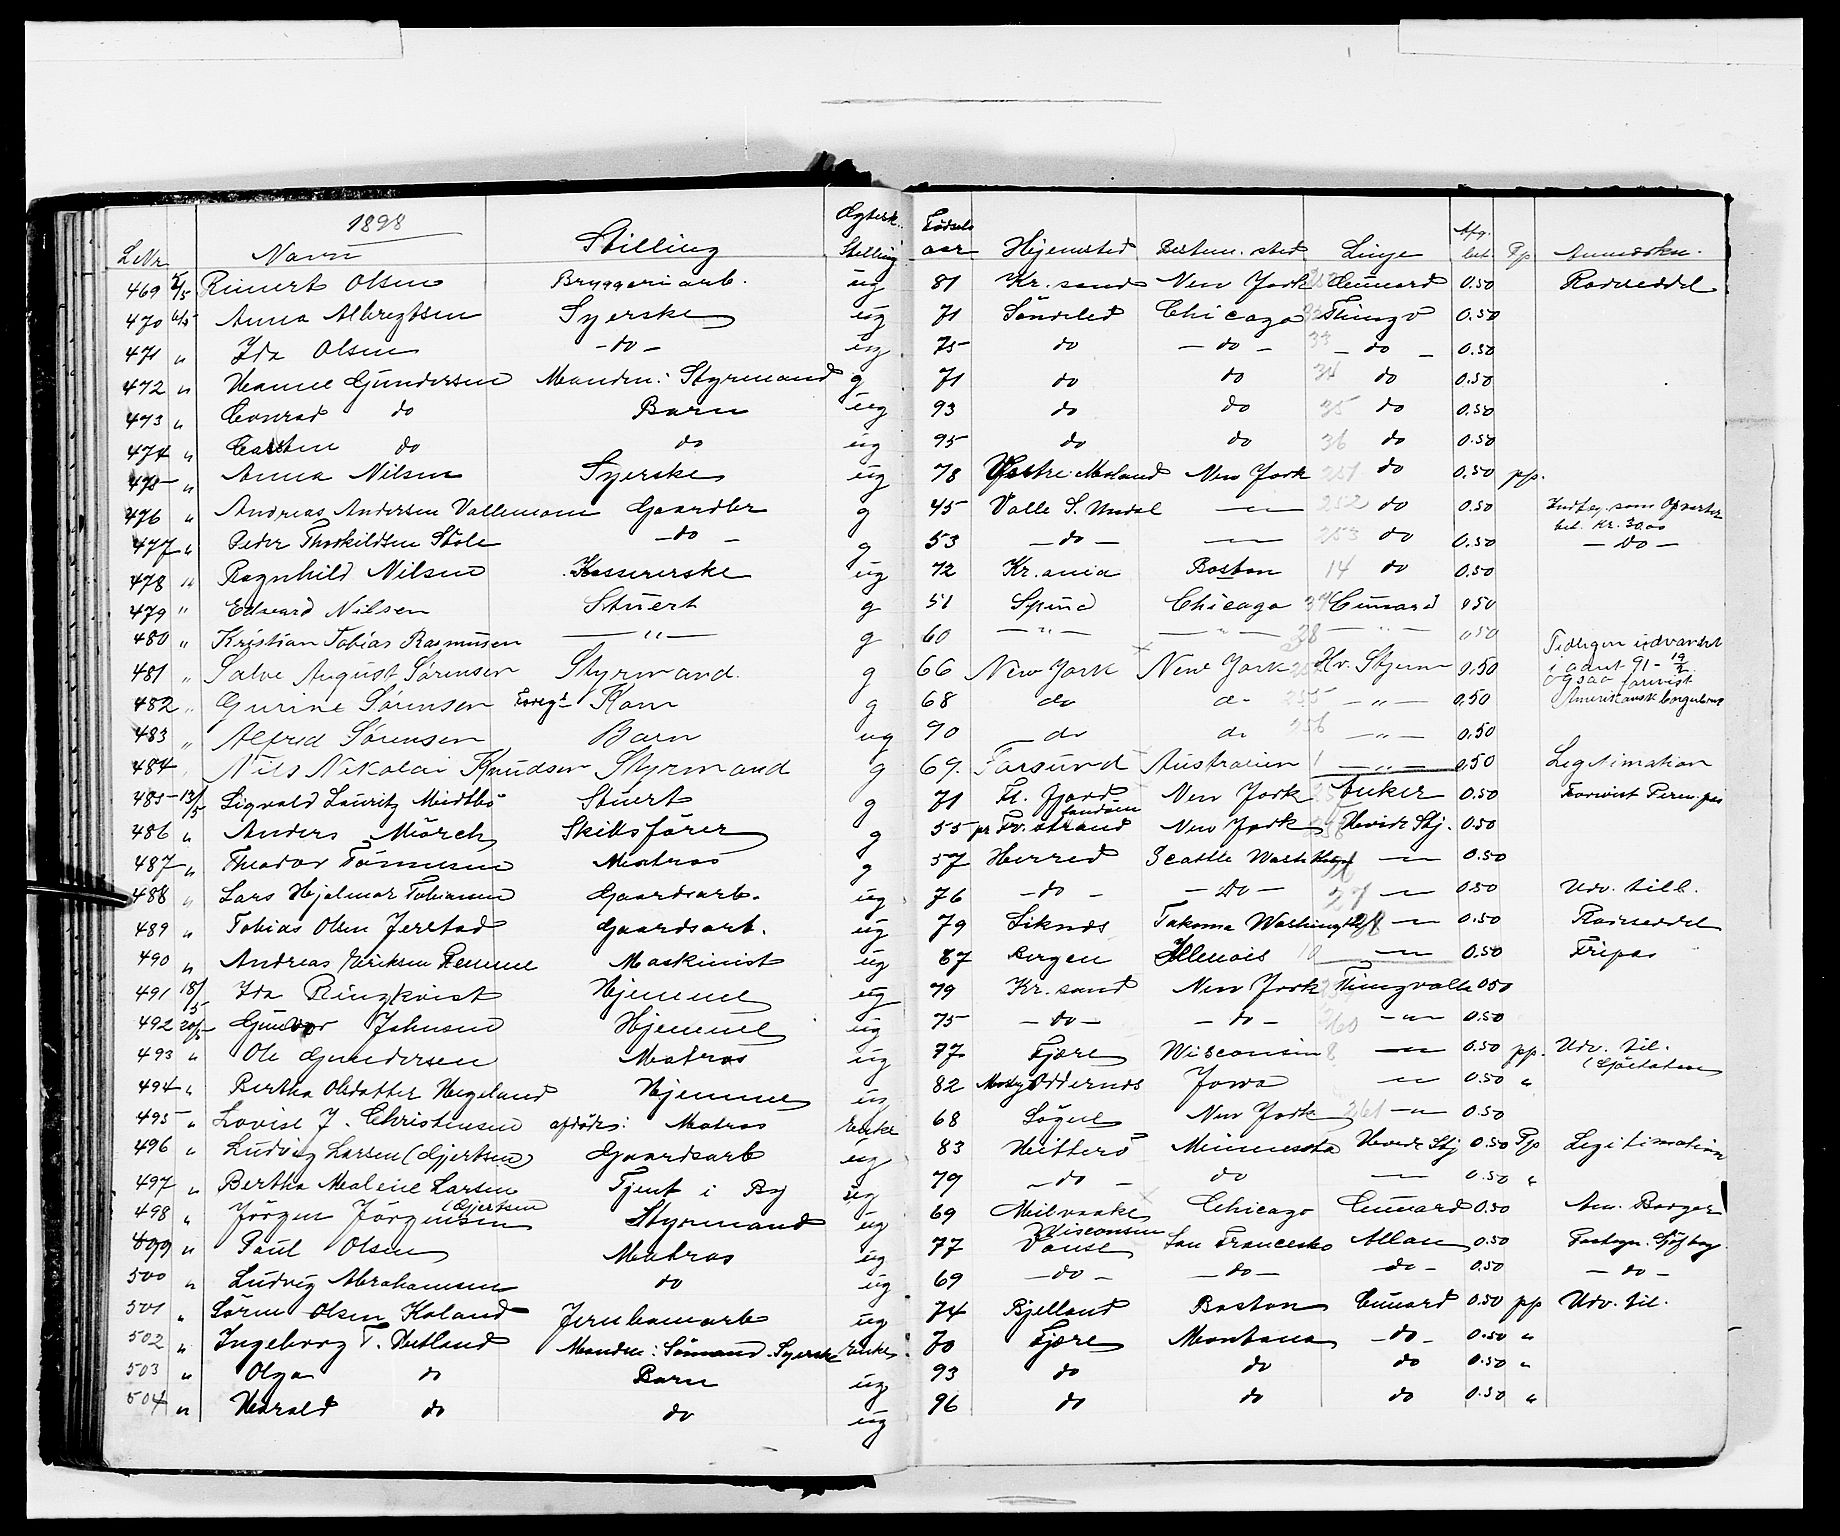 1898
LNr. Navn Stilling Egtesk. Stilling Fødsels aar Hjemsted Bestem. sted Linje Afg. bet. Pp Anmerkn.
469 5/5 Reinert Olsen Bryggeriarb. ug 81 Kr.sand New York Cunard 0.50 Rodeseddel
470 6/5 Anna Albregtsen Syerske ug 71 Söndeled Chicago 32 Thingv 0.50
471 " Ida Olsen -do- ug 75 do -do- 33 -do- 0.50
472 " Hanne Gundersen Manden: Styrmand g 71 do do 34 do 0.50
473 " Conrad do Barn ug 93 do do 35 do 0.50
474 " Carsten do do ug 95 do do 36 do 0.50
475 " Anna Nilsen Syerske ug 78 Østre Moland New York 251 do 0.50 pp.
476 " Andreas Andersen Vallemoen Gaardbr g 45 Valle S. Undal -"- 252 do 0.50 Indteg. som Opvarter bet. Kr. 30,00
477 " Peder Thorkildsen Støle -do- g 53 -do- -"- 253 do 0.50 -do-
478 " Ragnhild Nilsen Kassererske ug 72 Kr.ania Boston 14 do 0.50
479 " Edvard Nilsen Stuert g 51 Spind Chicago 37 Cunard 0.50
480 " Kristian Tobias Rasmussen -"- g 60 -"- -"- 38 -"- 0.50
481 " Salve August Sørensen Styrmand. g 66 New York New York Hv. Stjern 0.50 Tidligere udvandret i aaret 91 - 19/2 ogsaa forevist Amerikansk borgerbrev
482 " Gurine Sørensen Foreg. Kone g 68 do do 255 -"- 0.50
483 " Alfred Sørensen Barn ug 90 do do 256 -"- 0.50
484 " Nils Nikolai Knudsen Styrmand g 69. Farsund Australien 1 -"- 0.50 Legitimation
485 13/5 Sigvald Lauritz Midtbö Stuert g 71 Fl. Fjord New York Anker 0.50 Forevist Perm. pas
486 " Anders Mörch Skibsförer g 55 pr Tv.strand New York Hvide Stj. 0.50
487 " Theodor Tönnesen Matros g 57 Herred Seattle Wash -"- 0.50
488 " Lars Hjalmar Tobiassen Gaardsarb. ug 76 -do- -do- 27 -"- 0.50 Udv. till.
489 " Tobias Olsen Jerstad Gaardsarb. ug 79 Siknes Takoma Washingt 28 -"- 0.50 Rodeseddel
490 " Andreas Eriksen Maskinist ug 87 Bergen Illenois 10 -"- 0.50 Fripas
491 18/5 Ida Ringkvist Hjemme ug 79 Kr.sand New York Thingvalle 0.50
492 20/5 Gunvor Johnsen Hjemme ug 75 -do- -do- 260 -"- 0.50
493 " Ole Gundersen Matros ug 77 Fjære Wisconsin 8 -"- 0.50 pp. Udv. til.
494 " Bertha Olsdatter Hegeland Hjemme ug 82 Oddernes Jowa -"- 0.50 "
495 " Lovise J. Christensen afdödes: Matros Enke 68 Sögne New York 261 -"- 0.50
496 " Ludvig Larsen (Gjertsen) Gaardsarb ug 83 Hitterö Minnesota Hvide Stj 0.50 Pp Legitimation
497 " Bertha Malene Larsen (Gjertsen) Tjent i By ug 79 -do- do -"- 0.50 "
498 " Jörgen Jorgensen Styrmand ug 69 Milvaake Wisconsin Chicago Cunard 0.50 Am. Borger
499 " Paul Olsen Matros ug 77 Vanse San Francesko Allan 0.50
500 " Ludvig Abrahamsen do ug 69 -do- -do- -do- 0.50 -do-
501 " Sören Olsen Kaland Jernbanearb ug 74 Bjelland Boston Cunard 0.50 pp Udv. til.
502 " Ingeborg T. Manden: Sömand Syerske Enke 70 Fjære Montana -do- 0.50 "
503 " Olga do Barn ug 93 do do do 0.50 "
504 " Harald do do ug 96 do do do 0.50 "